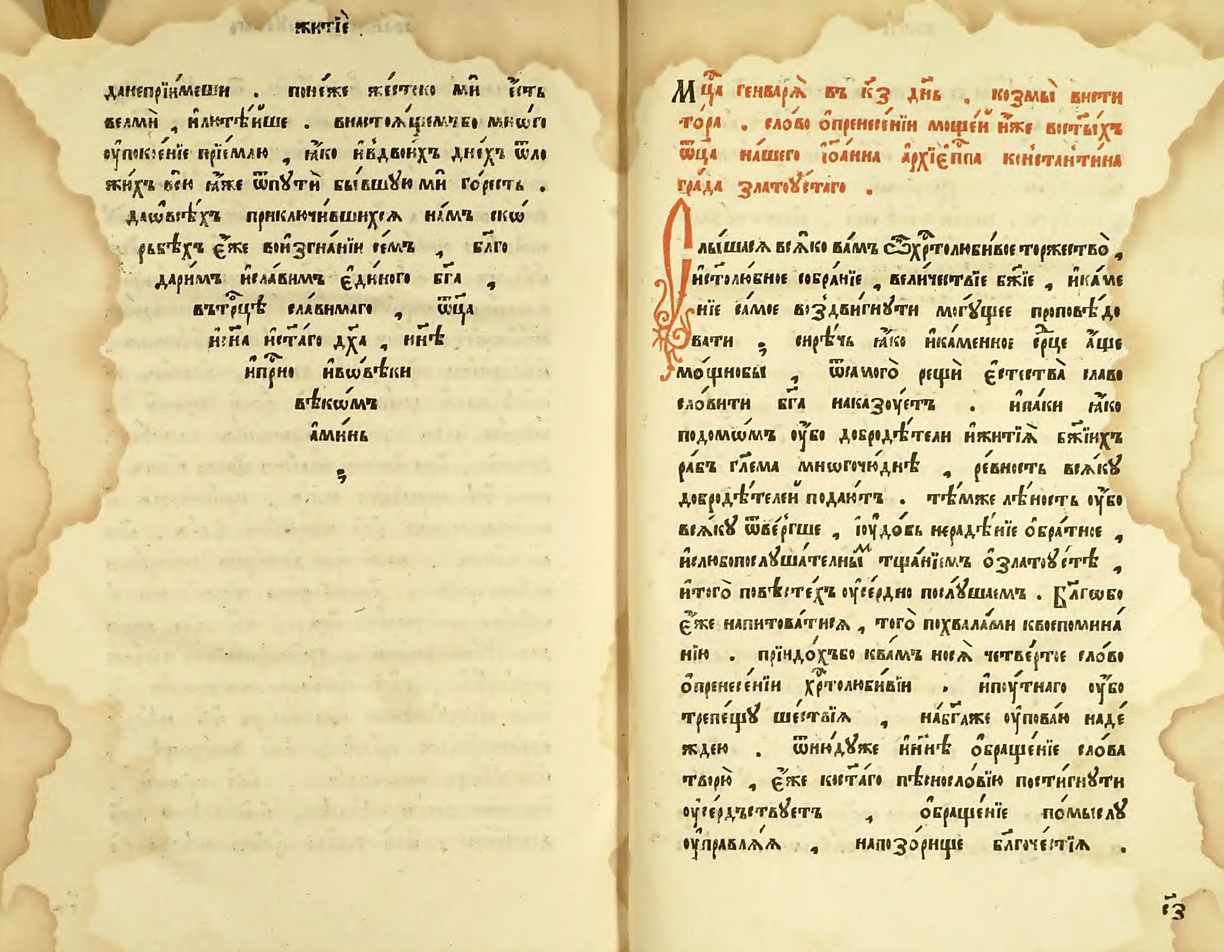 житїѐ
данепрїи́меши . поне́же же́стоко мѝ є҆́сть
велмѝ , и҆лютѣ́йше . внастоѧ́щемъбо мно́го
оу҆покое́нїе прїе́млю , ꙗ҆́ко и҆вдвои́хъ дне́хъ ѿло
жи́хъ всю̀ ꙗ҆́же ѿпутѝ бы́вшую мѝ го́ресть .
даѡ҆все́хъ приключи́вшихсѧ на́мъ ско́
рьбѣхъ є҆́же воизгна́нїи се́мъ , бл҃го
дари́мъ и҆сла́вимъ є҆ди́ного бг҃а ,
вътрⷪ҇цѣ сла́вимаго , ѿц҃а
и҆сн҃а и҆ст҃а́го дх҃а , нн҃ѣ
и҆прⷭ҇но и҆вѡвѣ́ки
вѣкѡ́мъ
а҆ми́нь
Мцⷭ҇а генварѧ̀ въ к҃з дн҃ь . козмы̀ вести
то́ра . сло́во ѡ҆пренесе́нїи моще́й и҆́же вост҃ы́хъ
ѿц҃а на́шего і҆ѡа́нна а҆рхїеп҃па констѧнти́на
гра́да златоу́стаго .
Слы́шасѧ всѧ́ко ва́мъ ѽхрⷭ҇толюби́вое торжество̀ ,
и҆истолю́бное собра́нїе , вели́чествїе бж҃їе , и҆ка́ме
нїе са́мое воздви́гнути могу́щее проповѣ́до
вати ; си́рѣчь ꙗ҆́ко и҆ка́менное срⷣце а҆́ще
мо́щнобы̀ , ѿсамого̀ рещѝ є҆стества̀ славо
сло́вити бг҃а наказу́етъ . и҆па́ки ꙗ҆́ко
подомѡ́мъ оу҆́бо добродѣ́тели и҆житїѧ̀ бж҃їихъ
ра́бъ гл҃ема мнѡгочю́днѣ , ре́вность всѧ́ку
добродѣ́телей подаю́тъ . тѣ́мже лѣ́ность оу҆́бо
всѧ́ку ѿве́ргше , і҆ю́довь нерадѣ́нїе ѻ҆бра́тное ,
и҆слюбопослуша́телны́м тща́нїемъ ѡ҆златоу́стѣ ,
и҆того̀ по́вѣстехъ оу҆се́рдно послу́шаемъ . Бл҃гѡ́бо
є҆́же напитова́тисѧ , того̀ похвала́ми квоспомина́
нїю . прїидо́хъбо ква́мъ носѧ̀ четве́ртое сло́во
ѡ҆пренесе́нїи хрⷭ҇толюби́вїи . и҆поу́тнаго оу҆́бо
трепе́щу ше́ствїѧ , на́бг҃аже оу҆пова́ю наде́
ждею . ѿню́дуже и҆нн҃ѣ ѡ҆браще́нїе сло́ва
творю̀ , є҆́же кост҃а́го пѣснесло́вїю пости́гнути
оу҆се́рдъствуетъ , ѡ҆браще́нїе по́мыслу
оу҆правлѧ́ѧ , напозо́рище бл҃гоче́стїѧ .
с҃з